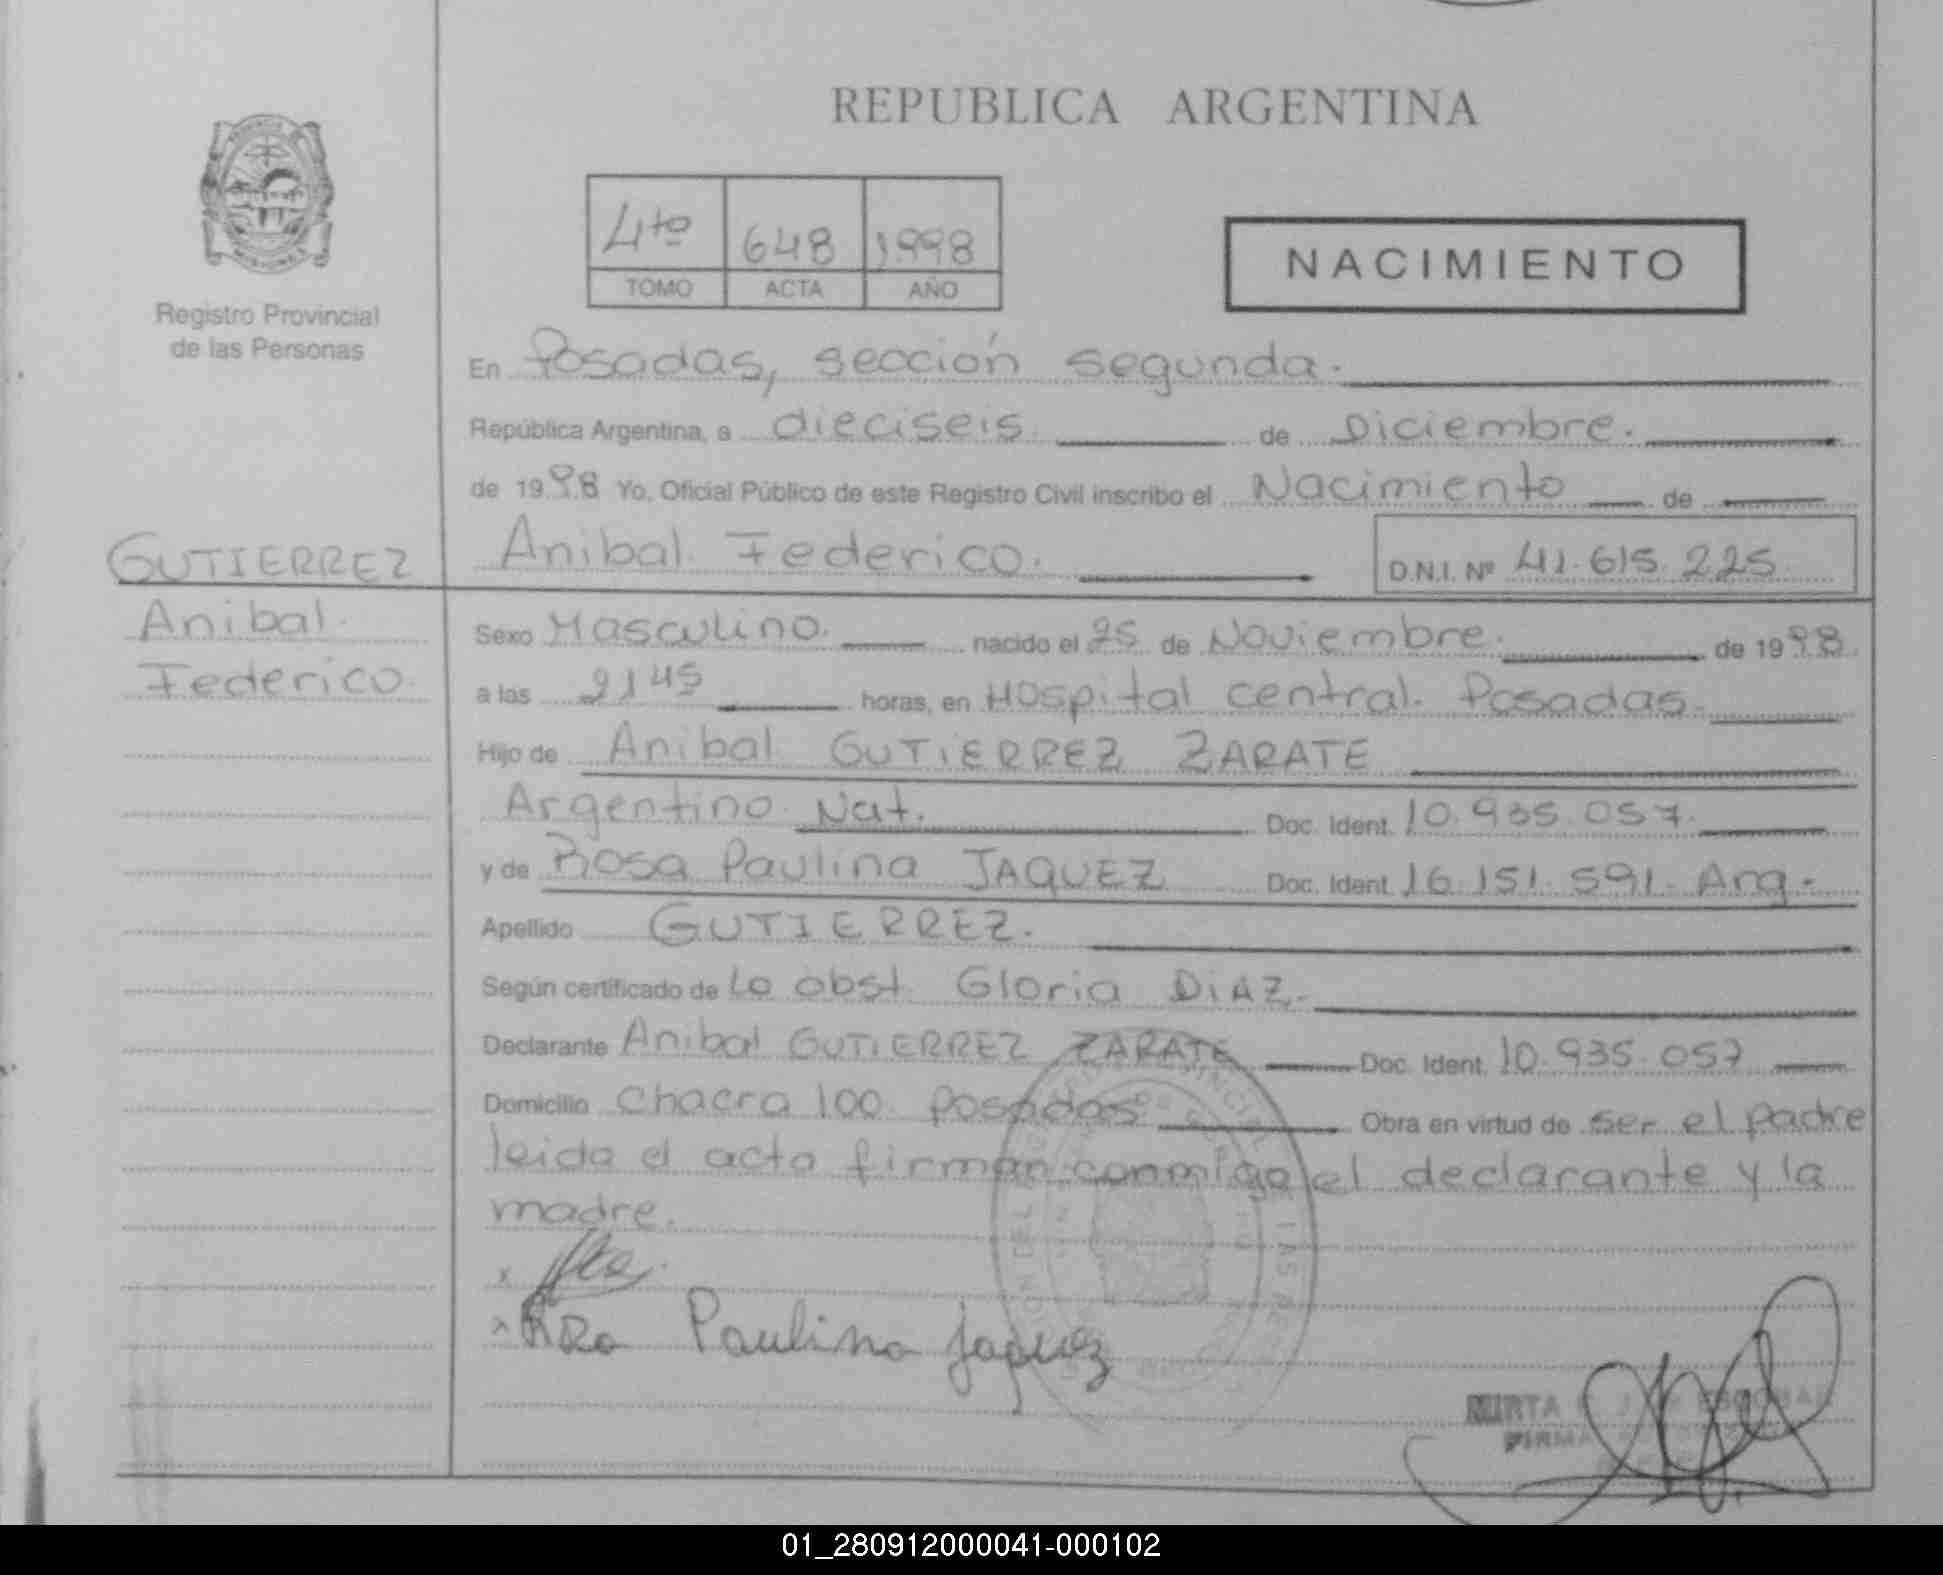 REPUBLICA ARGENTINA
4to 648 1998
TOMO ACTA AÑO
NACIMIENTO
Registro Provincial
de las Personas
En Posadas, sección segunda.
República Argentina, a dieciseis de Diciembre.
de 1998 Yo, Oficial Público de este Registro Civil inscribo el Nacimiento de
GUTIERREZ
Anibal
Federico
Anibal Federico.
D.N.I. Nº 41.615.225
Sexo Masculino. nacido el 25 de Noviembre. de 1998
a las 2145 horas, en Hospital central. Posadas.
Hijo de Anibal GUTIERREZ ZARATE
Argentino Nat. Doc. Ident. 10.935.057.
y de Rosa Paulina JAQUEZ Doc. Ident. 16.151.591. Arg.
Apellido GUTIERREZ.
Según certificado de La obst. Gloria DIAZ.
Declarante Anibal GUTIERREZ ZARATE Doc. Ident. 10.935.057
Domicilio Chacra 100 Posadas Obra en virtud de ser el padre
leida el acta firman conmigo el declarante y la
madre.
x
x Paulina Jaquez
MIRTA ESCOBAR
FIRMA
01_280912000041-000102